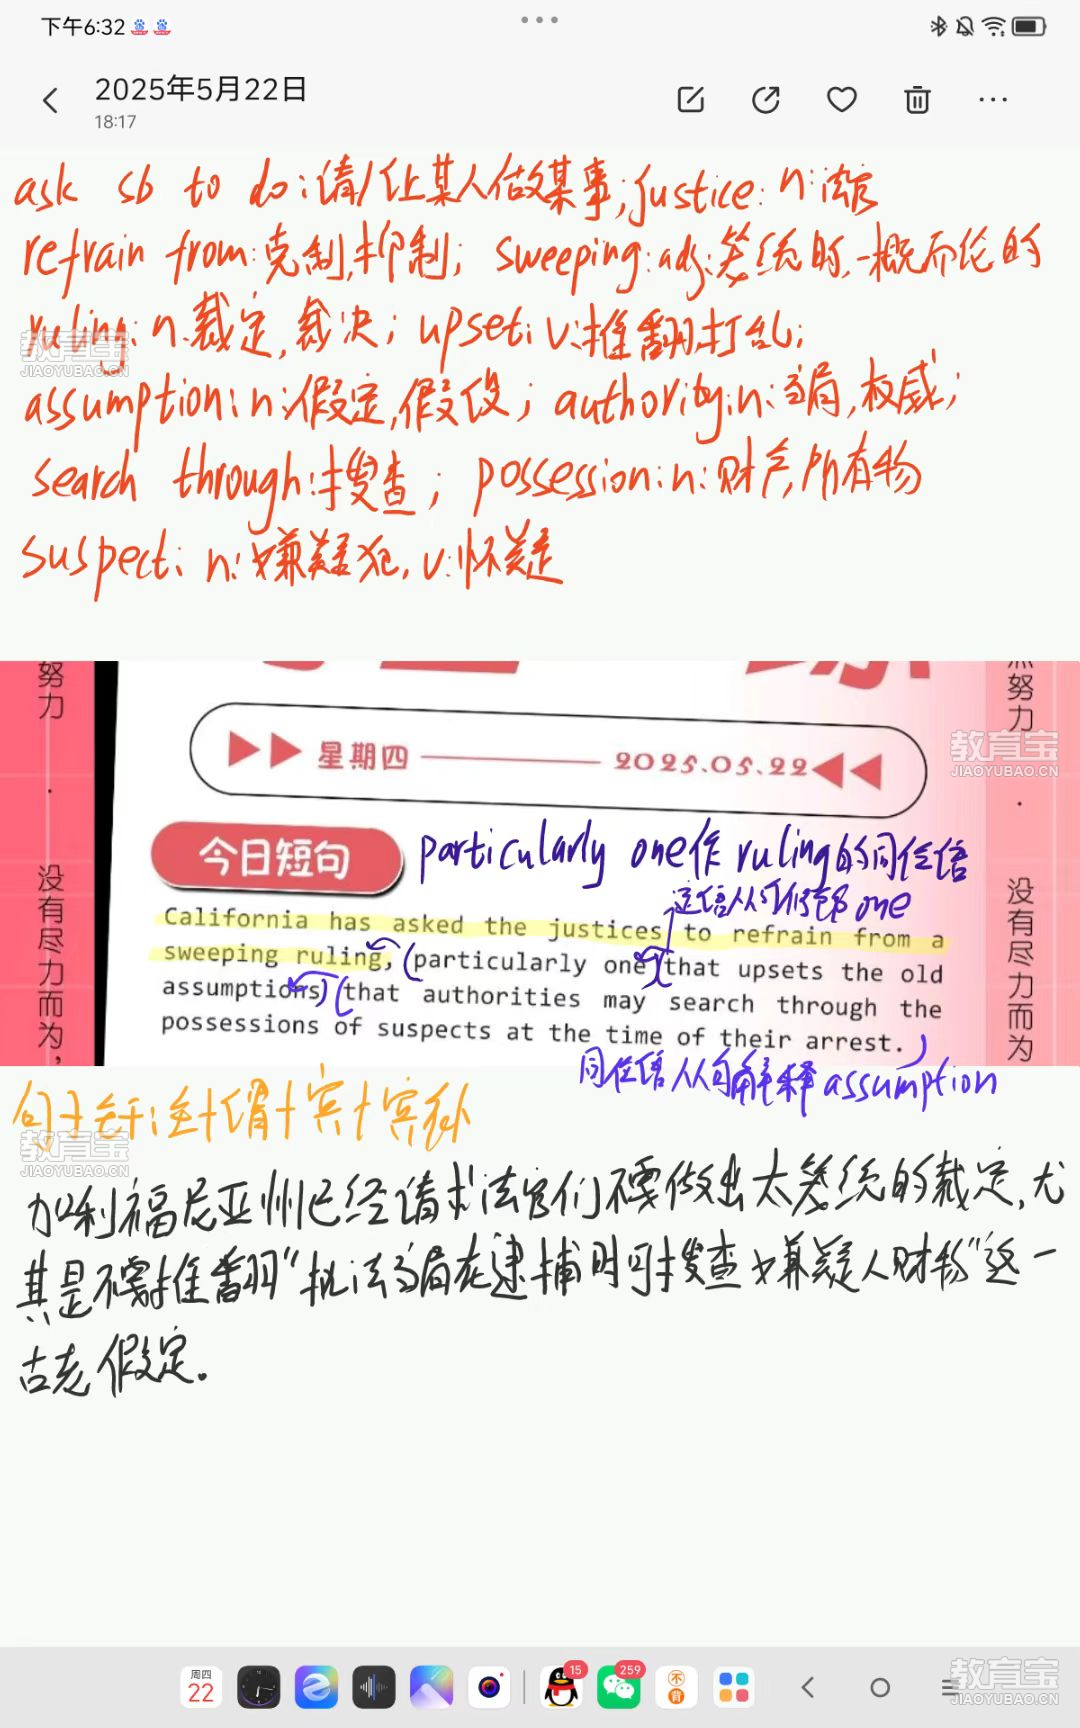 下午6:32
2025年5月22日
18:17
ask sb to do:请/让某人做某事;justice: n:法官
refrain from:克制,抑制; sweeping:adj:笼统的,一概而论的
ruling: n.裁定,裁决; upset: v:推翻,打乱;
assumption: n:假定,假设; authority:n:当局,权威;
search through:搜查; possession:n:财产,所有物
suspect: n:嫌疑犯, v:怀疑
努力
·
没有尽力而为,
然努力
·
没有尽力而为
星期四 2025.05.22
今日短句
particularly one作 ruling的同位语
定语从句修饰 one
California has asked the justices to refrain from a
sweeping ruling, (particularly one)(that upsets the old
assumptions)(that authorities may search through the
possessions of suspects at the time of their arrest.)
同位语从句解释 assumption
句子主干:主+谓+宾+宾补
加利福尼亚州已经请求法官们不要做出太笼统的裁定,尤
其是不要推翻“执法当局在逮捕时可搜查嫌疑人财物”这一
古老假定.
周四
22
15
259
不背
教育宝
JIAOYUBAO.CN
教育宝
JIAOYUBAO.CN
教育宝
JIAOYUBAO.CN
教育宝
JIAOYUBAO.CN